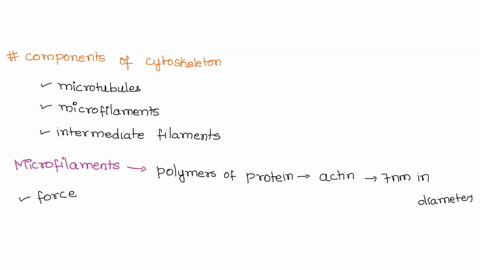 # components of cytoskeleton
✓ microtubules
✓ microfilaments
✓ intermediate filaments
Microfilaments → polymers of protein → actin → 7nm in
diameter
✓ force